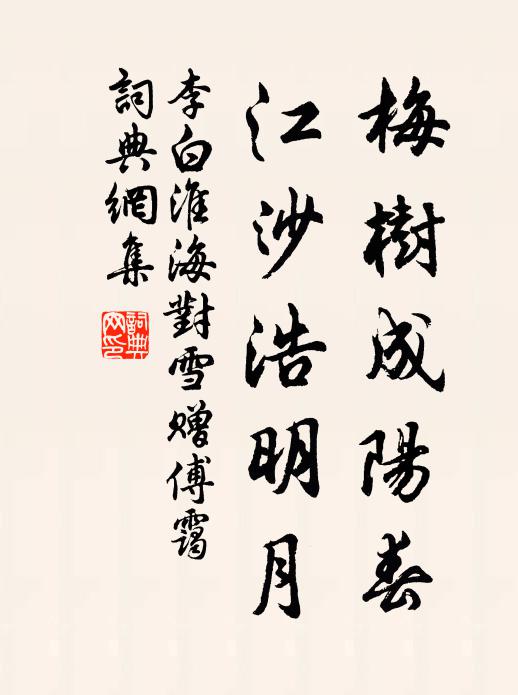 梅樹成陽春
江沙浩明月
李白淮海對雪贈傅靄
詞典網集
詞典網印